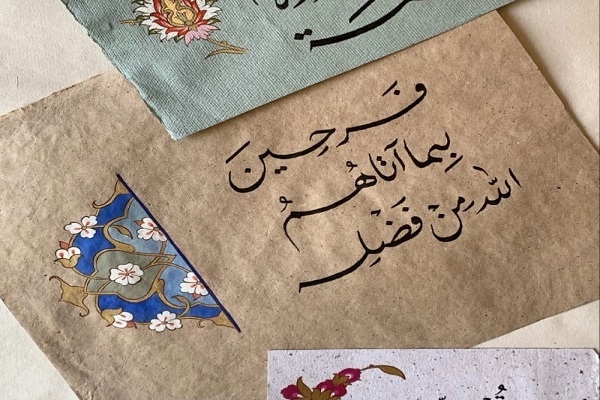 فَرِحِينَ
بِمَا آتَاهُمُ
اللهُ مِنْ فَضْلِهِ